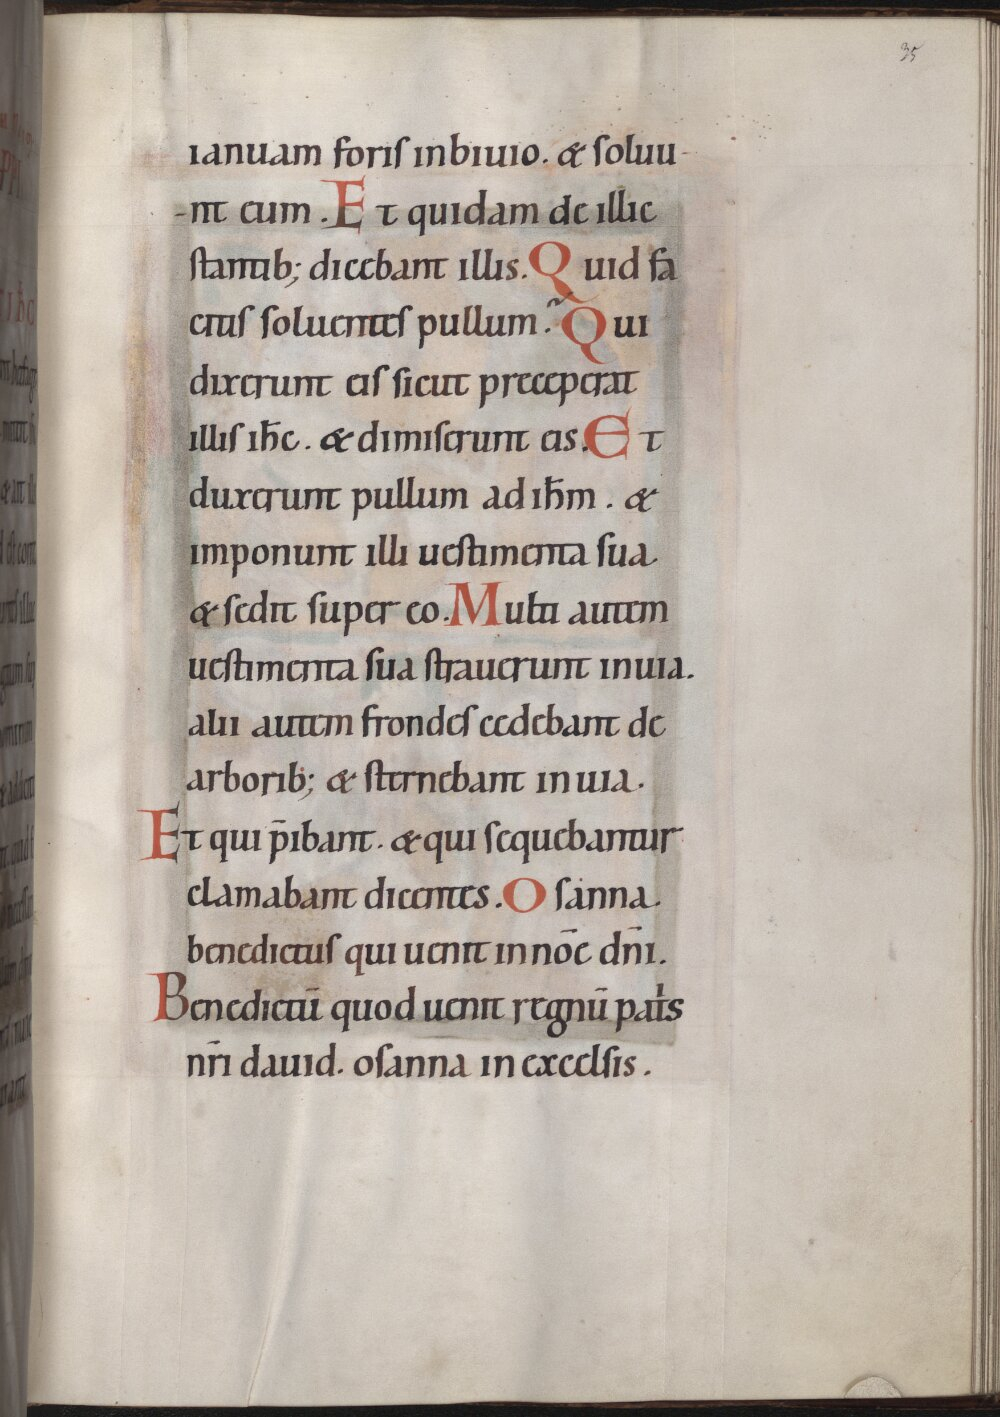 35
ianuam foris in biuio. & soluu-
-nt eum. Et quidam de illic
stantib; dicebant illis. Quid fa
citis soluentes pullum? Qui
dixerunt eis sicut preceperat
illis ih̄c. & dimiserunt eis. Et
duxerunt pullum ad ih̄m. &
imponunt illi uestimenta sua
& sedit super eo. Multi autem
uestimenta sua strauerunt in uia.
alii autem frondes cedebant de
arborib; & sternebant in uia.
Et qui p̄ibant. & qui sequebantur
clamabant dicentes. Osanna.
benedictus qui uenit in nōe dn̄i.
Benedictū quod uenit regnū pat̍s
nr̄i dauid. osanna in excelsis.